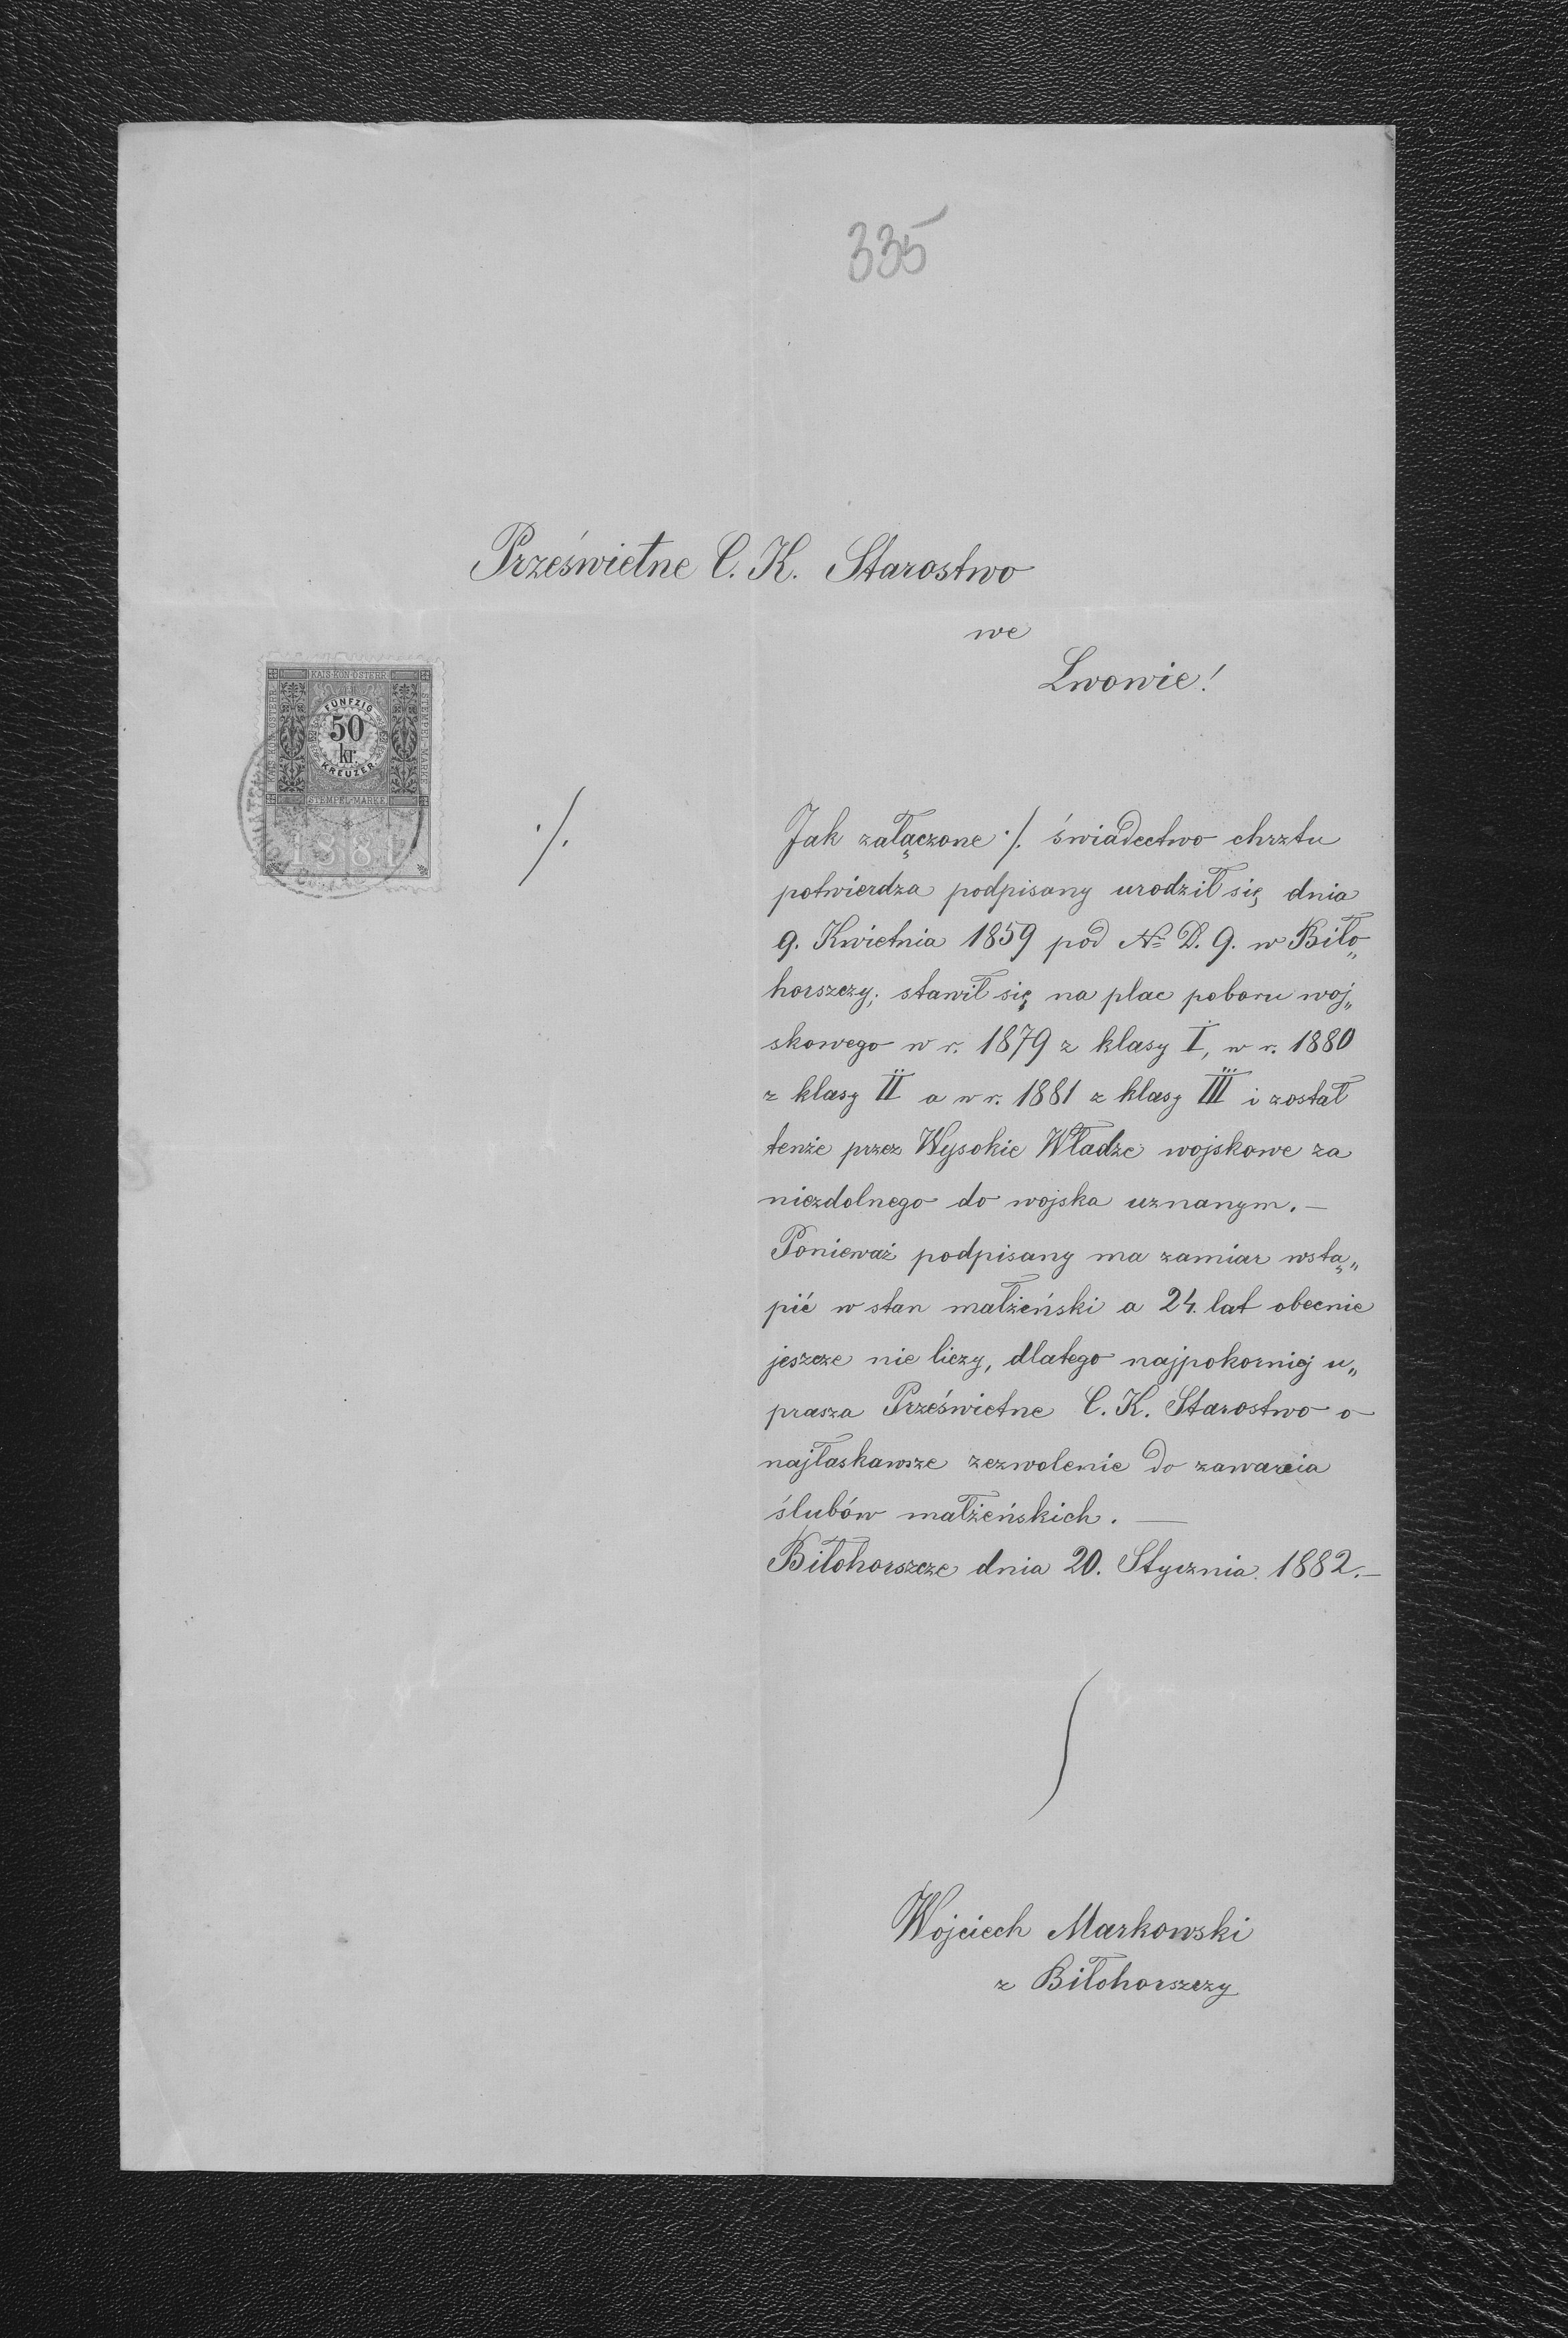 335
Prześwietne C. K. Starostwo
we
Lwowie!
KAIS. KÖN. ÖSTERR.
STEMPEL-MARKE
FÜNFZIG
50
kr.
KREUZER
STEMPEL-MARKE
1881
·/.
Jak załączone ·/. świadectwo chrztu
potwierdza podpisany urodził się dnia
9. Kwietnia 1859 pod № D. 9. w Biło„
horszczy; stawił się na plac poboru woj„
skowego w r. 1879 z klasy I, w r. 1880
z klasy II a w r. 1881 z klasy III i został
tenże przez Wysokie Władze wojskowe za
niezdolnego do wojska uznanym. —
Ponieważ podpisany ma zamiar wstą„
pić w stan małżeński a 24. lat obecnie
jeszcze nie liczy, dlatego najpokorniej u„
prasza Prześwietne C. K. Starostwo o
najłaskawsze zezwolenie do zawarcia
ślubów małżeńskich. —
Biłohorszcze dnia 20. Stycznia 1882. —
Wojciech Markowski
z Biłohorszczy